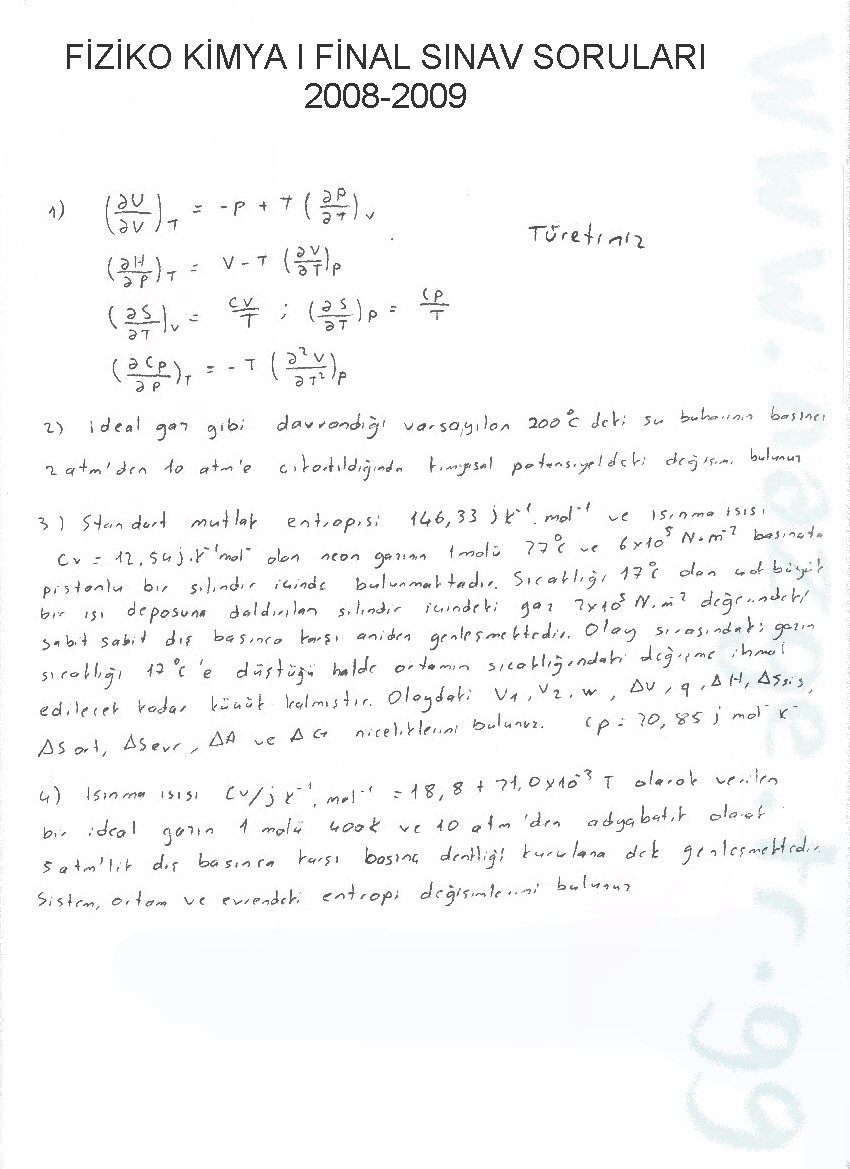 FİZİKO KİMYA I FİNAL SINAV SORULARI
2008-2009
1) (∂U/∂V)_T = -P + T (∂P/∂T)_V
Türetiniz
(∂H/∂P)_T = V - T (∂V/∂T)_P
(∂S/∂T)_V = CV/T ; (∂S/∂T)_P = CP/T
(∂CP/∂P)_T = - T (∂²V/∂T²)_P
2) ideal gaz gibi davrandığı varsayılan 200°C deki su buharının basıncı
2 atm'den 10 atm'e çıkartıldığında kimyasal potansiyeldeki değişimi bulunuz
3) Standart mutlak entropisi 146,33 j k⁻¹. mol⁻¹ ve ısınma ısısı
Cv = 12,54 j.k⁻¹mol⁻ olan neon gazının 1 molü 27°C ve 6x10⁵ N.m⁻² basınçta
pistonlu bir silindir içinde bulunmaktadır. Sıcaklığı 17°C olan çok büyük
bir ısı deposuna daldırılan silindir içindeki gaz 2x10⁵ N.m² değerindeki
sabit sabit dış basınca karşı aniden genleşmektedir. Olay sırasındaki gazın
sıcaklığı 17°C'e düştüğü halde ortamın sıcaklığındaki değişme ihmal
edilecek kadar küçük kalmıştır. Olaydaki V₁, V₂, w, ΔU, q, ΔH, ΔSsis,
ΔSort, ΔSevr, ΔA ve ΔG niceliklerini bulunuz. Cp = 20,85 j mol⁻ K⁻
4) Isınma ısısı Cv/j k⁻¹. mol⁻¹ = 18,8 + 21,0x10⁻³ T olarak verilen
bir ideal gazın 1 molü 400k ve 10 atm'den adyabatik olarak
5 atm'lik dış basınca karşı basınç denkliği kurulana dek genleşmektedir.
Sistem, ortam ve evrendeki entropi değişimlerini bulunuz